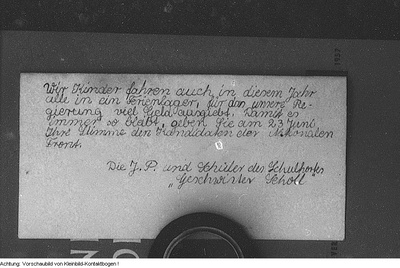 Wir Kinder fahren auch in diesem Jahr
alle in ein Ferienlager, für das unsere Re-
gierung viel Geld ausgibt. Damit es
immer so bleibt, geben Sie am 23. Juni
Ihre Stimme den Kandidaten der Nationalen
Front.
Die J. P. und Schüler des Schulhortes
"Geschwister Scholl"
Achtung: Vorschaubild von Kleinbild-Kontaktbogen!